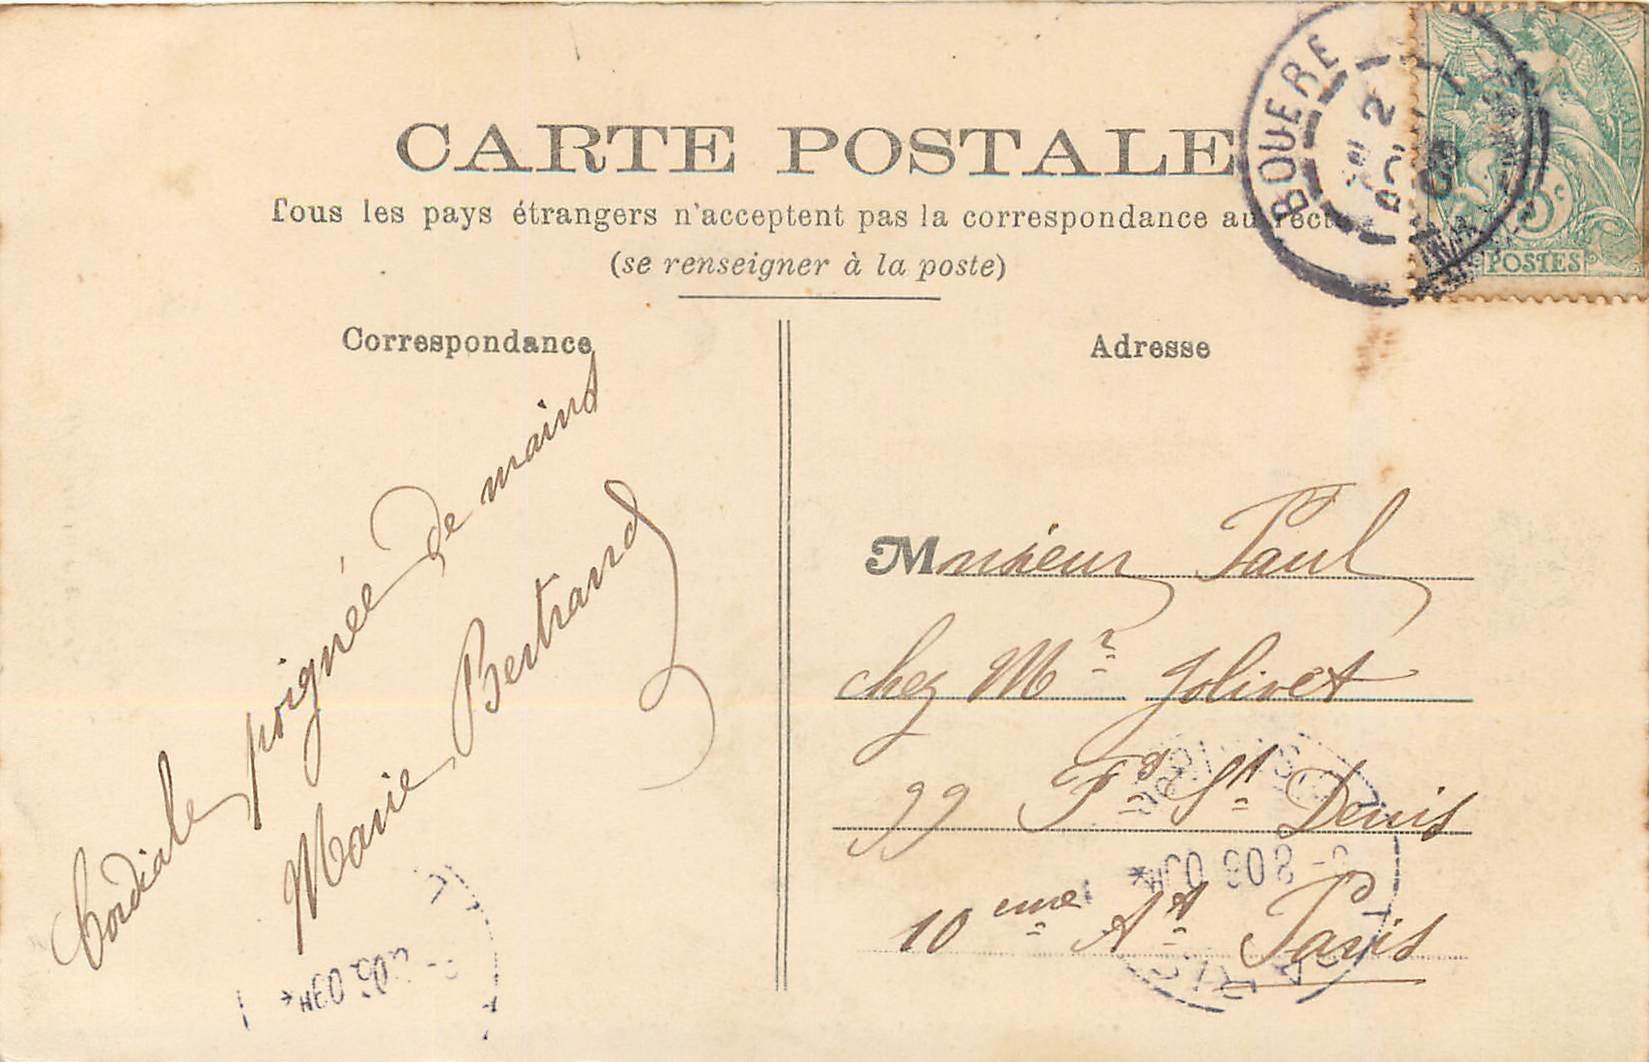 CARTE POSTALE
Tous les pays étrangers n'acceptent pas la correspondance au recto
(se renseigner à la poste)
Correspondance
Adresse
BOUERE
5c
POSTES
Cordiale poignée de mains
Marie Bertrand
Monsieur Paul
chez Mr Jolivet
99 Fg St Denis
10eme At Paris